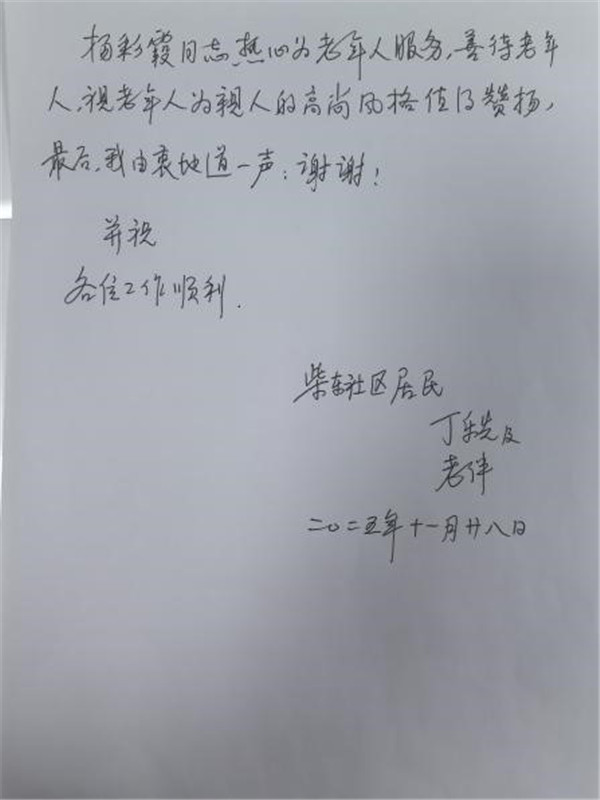 杨彩霞同志热心为老年人服务,善待老年
人,视老年人为亲人的高尚风格值得赞扬,
最后,我由衷地道一声:谢谢!
并祝
各位工作顺利.
柴东社区居民
丁乐先及
老伴
二〇二五年十一月廿八日